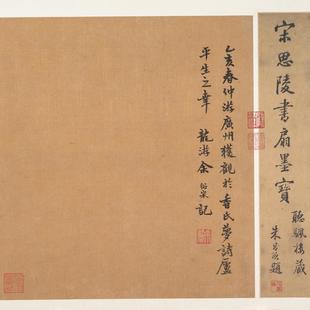 宋思陵書扇墨寶
聽颿樓藏
題
乙亥春仲游廣州獲觀於香氏夢詩廬
平生之幸 龍游余紹宋記